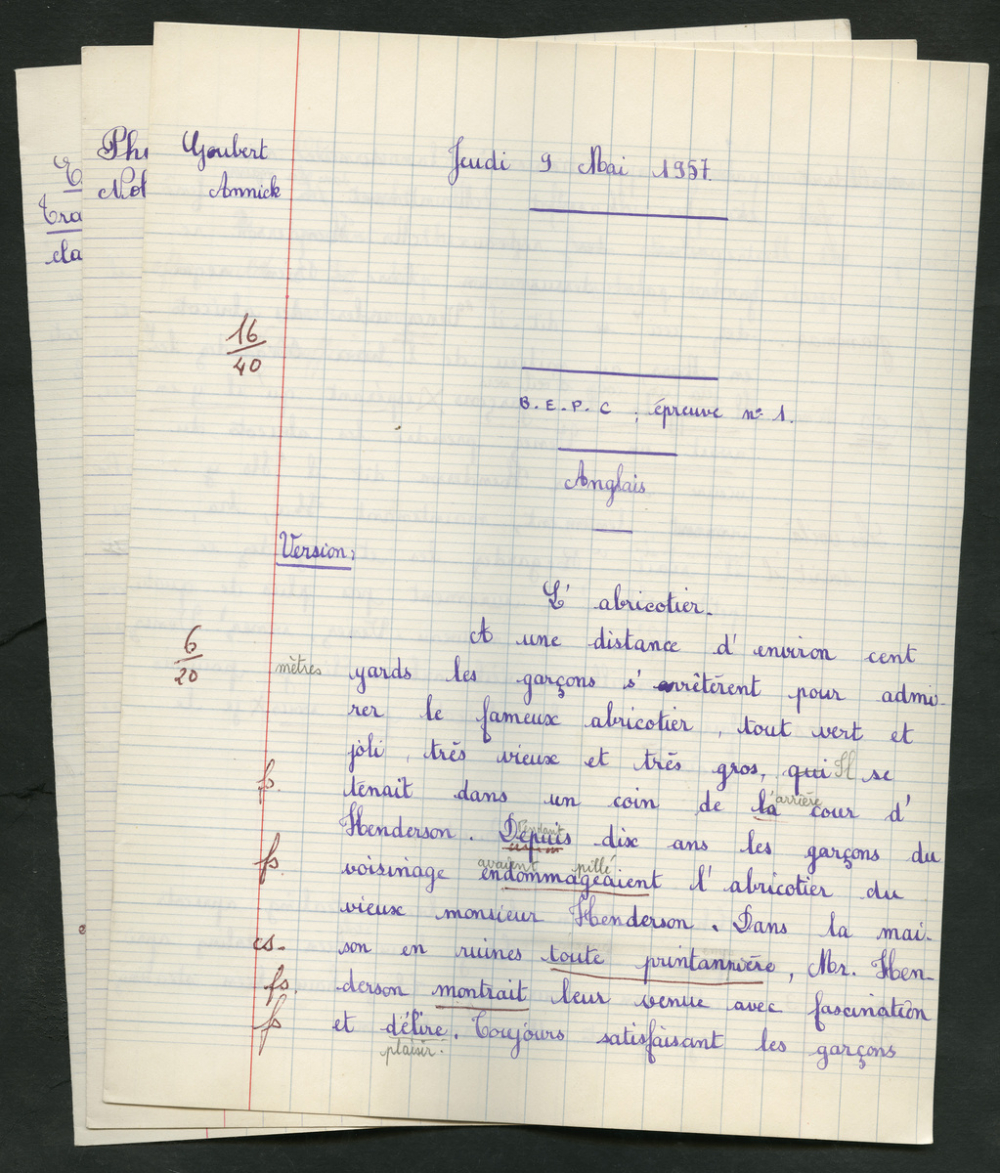 Phi
Not
E
Tra
cla
Goubert
Annick
Jeudi 9 Mai 1957.
16
40
B.E.P.C, épreuve n° 1.
Anglais
Version:
L'abricotier.
6
20
A une distance d'environ cent
mètres
yards les garçons s'arrêtèrent pour admi-
rer le fameux abricotier, tout vert et
joli, très vieux et très gros, qui Il se
fs
arrière
tenait dans un coin de la cour d'
Pendant
Henderson. Depuis dix ans les garçons du
fs.
avaient pillé
voisinage endommageaient l'abricotier du
vieux monsieur Henderson. Dans la mai-
cs-
son en ruines toute printannière, Mr. Hen-
fs.
derson montrait leur venue avec fascination
fs
et délire. Toujours satisfaisant les garçons
plaisir.